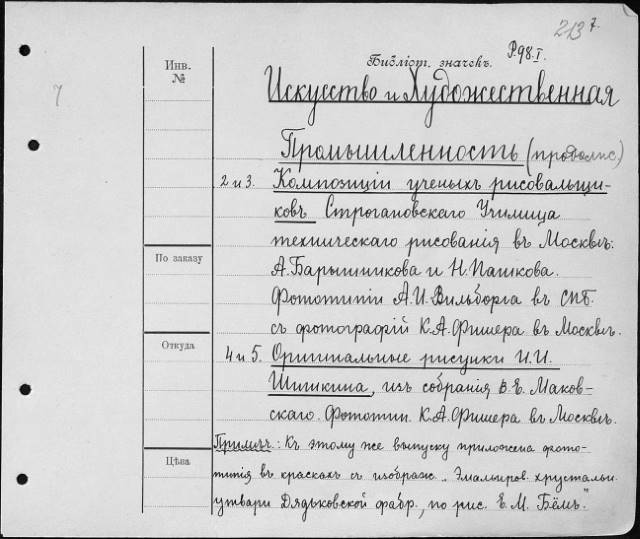 213 7.
7
Инв. №
Библіот. значекъ. Р.98.I.
Искусство и Художественная
Промышленность (продолж.)
2 и 3. Композиціи ученыхъ рисовальщи-
ковъ Строгановскаго Училища
техническаго рисованія въ Москвѣ:
По заказу
А. Барышникова и Н. Пашкова.
Фототипіи А. И. Вильборга въ СПБ.
съ фотографій К. А. Фишера въ Москвѣ.
Откуда
4 и 5. Оригинальные рисунки И. И.
Шишкина, изъ собранія В. Е. Маков-
скаго. Фототип. К. А. Фишера въ Москвѣ.
Примѣч.: Къ этому же выпуску приложена фото-
Цѣна
типія въ краскахъ съ изображ. „Эмальиров. хрустальн.
утвари Дядьковской фабр., по рис. Е. М. Бёмъ."